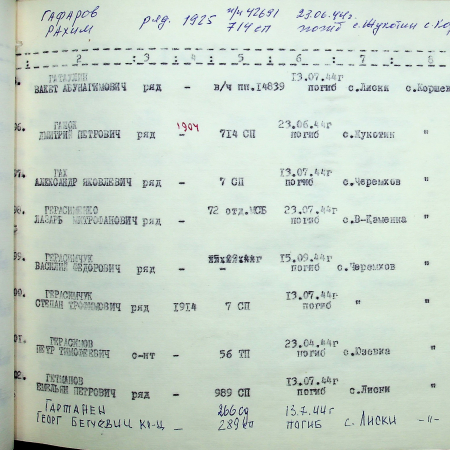 ГАФАРОВ РАХИМ ряд. 1925 п/п 42691 714 сп 23.06.44г. погиб с. Жукотин
: 2 : 3 : 4 : 5 : 6 : 7 : 8
13.07.44г
ВАКЕТ ряд - в/ч пп.14839 погиб с.Лиски с.Коршев
23.06.44г
ДМИТРИЙ ПЕТРОВИЧ ряд 1904 714 СП погиб с.Жукотин "
ГАХ 13.07.44г
АЛЕКСАНДР ЯКОВЛЕВИЧ ряд - 7 СП погиб с.Черемхов "
ГЕРАСИМЕНКО 72 отд.МСБ 23.07.44г
ЛАЗАРЬ МИТРОФАНОВИЧ ряд - погиб с.В-Каменка "
ГЕРАСИМЧУК 15.09.44г
ВАСИЛИЙ ФЕДОРОВИЧ ряд - - погиб с.Черемхов "
ГЕРАСИМЧУК 13.07.44г
СТЕПАН ТРОФИМОВИЧ ряд 1914 7 СП погиб "
ГЕРАСИМОВ 23.04.44г
ПЕТР ТИМОФЕЕВИЧ с-нт - 56 ТП погиб с.Юзевка "
ГЕТМАНОВ 13.07.44г
ЕМЕЛЬЯН ПЕТРОВИЧ ряд - 989 СП погиб с.Лиски "
ГАРТАНЕН 266 сд 13.7.44г
ГЕОРГ кр-ц - погиб с. Лиски -"-